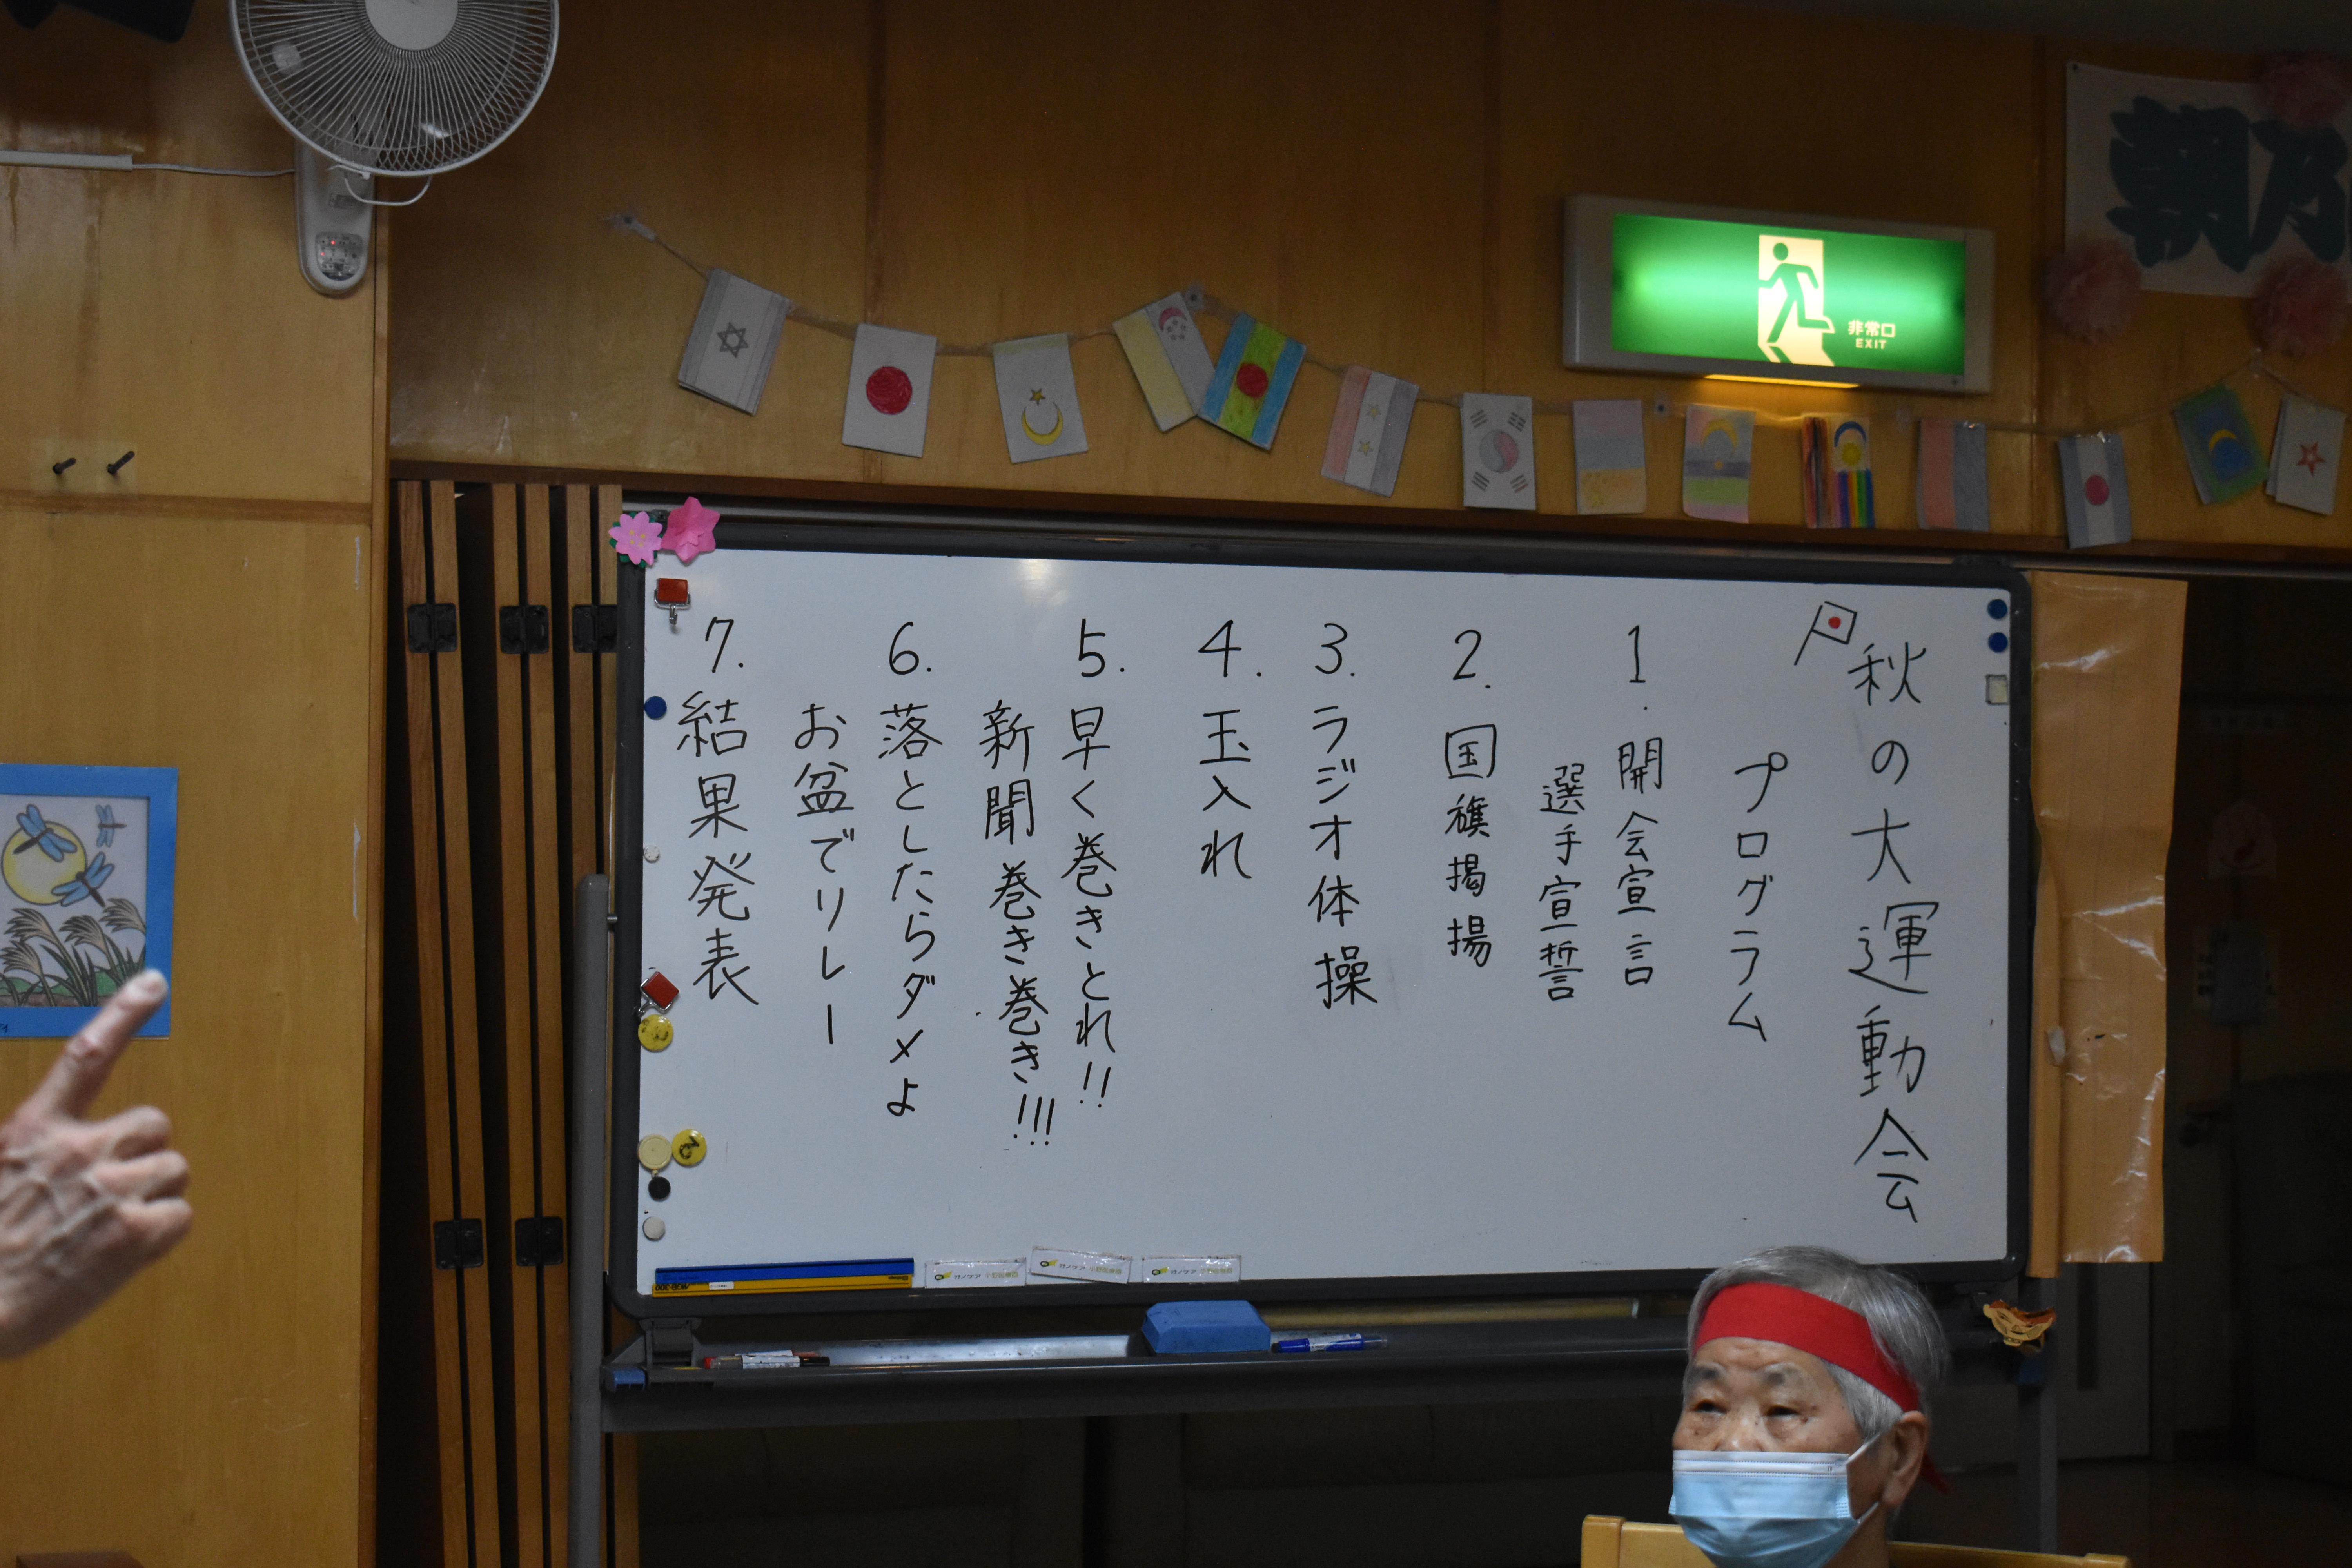 秋の大運動会
プログラム
1. 開会宣言
選手宣誓
2. 国旗掲揚
3. ラジオ体操
4. 玉入れ
5. 早く巻きとれ!!
新聞巻き巻き!!!
6. 落としたらダメよ
お盆でリレー
7. 結果発表
非常口
EXIT
朝乃